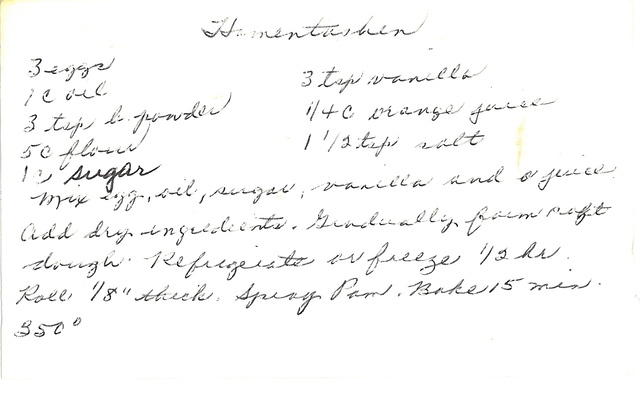 Hamentashen
3 eggs
1 c oil
3 tsp b. powder
5 c flour
1 c sugar
3 tsp vanilla
1/4 c orange juice
1 1/2 tsp salt
Mix egg, oil, sugar, vanilla and o juice
Add dry ingredients. Gradually form soft
dough. Refrigerate or freeze 1/2 hr.
Roll 1/8" thick. Spray Pam. Bake 15 min.
350°